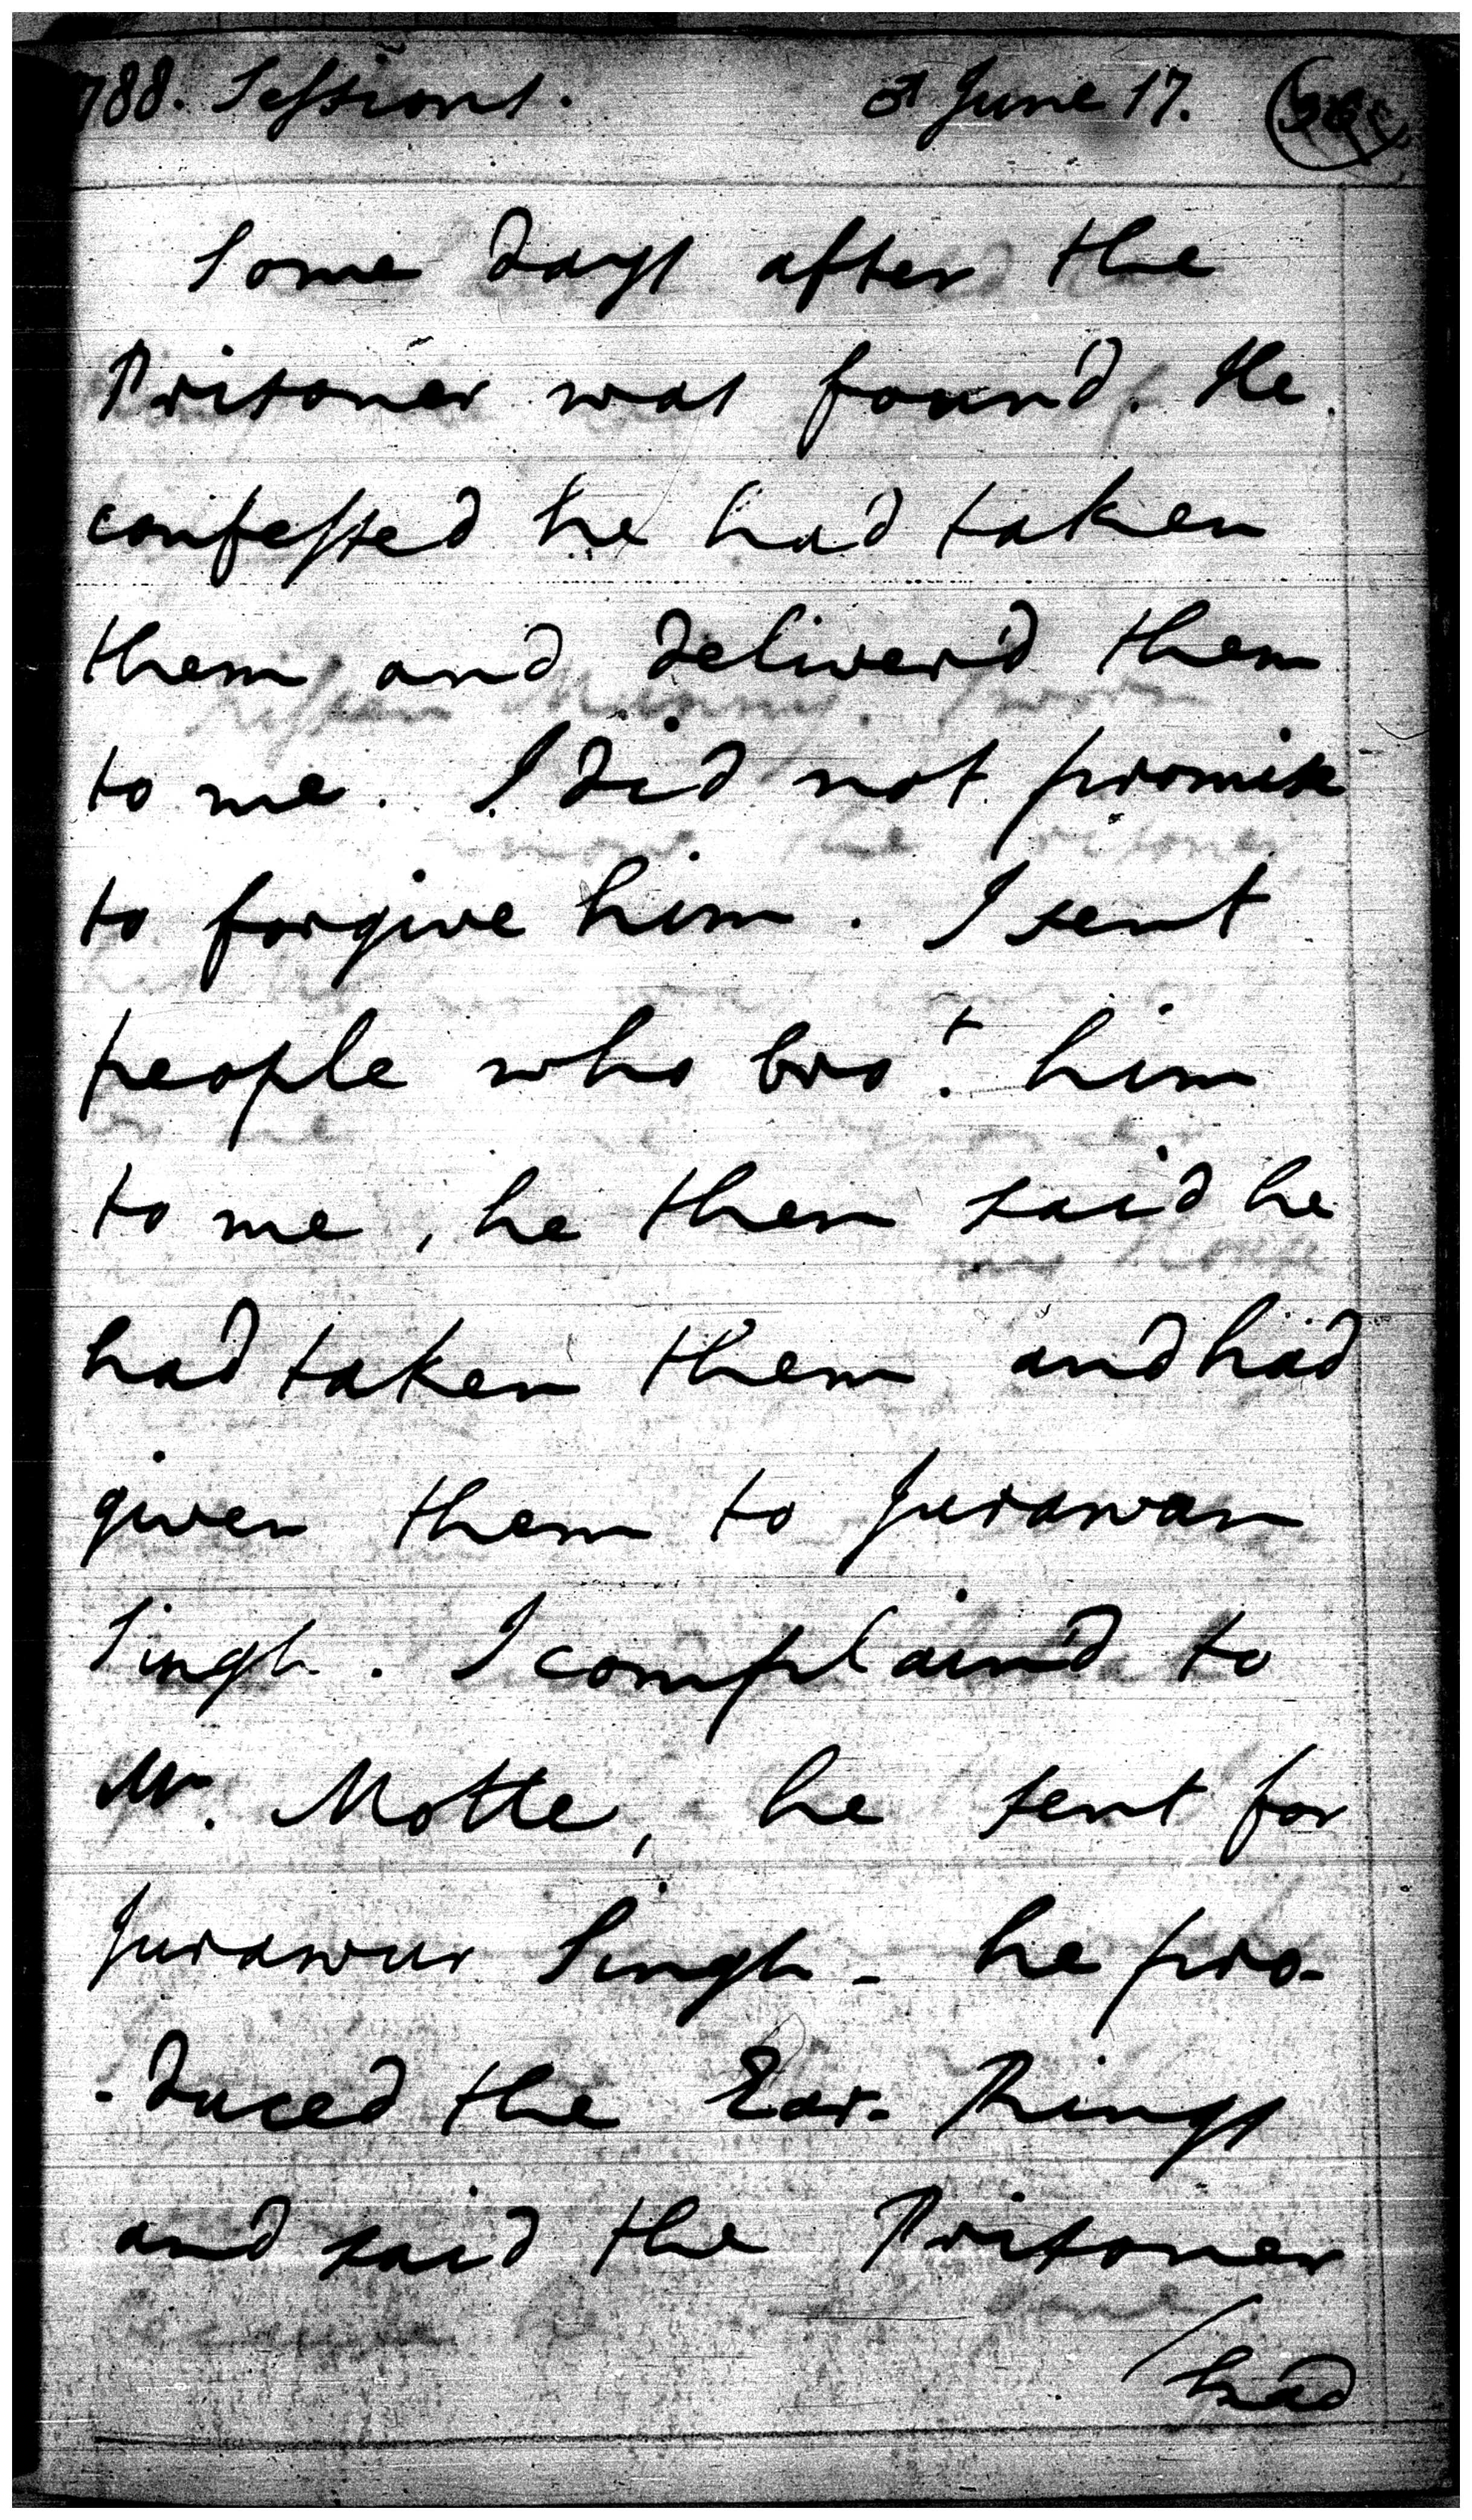 788. Sessions. ♂ June 17.
Some days after the
Prisoner was found. He
confessed he had taken
them and deliver'd them
to me. I did not promise
to forgive him. I sent
people who bro.t him
to me, he then said he
had taken them and had
given them to Jurawan
Singh. I complain'd to
Mr. Motte, he sent for
Jurawur Singh - he pro-
-duced the Ear-Rings
and said the Prisoner
had